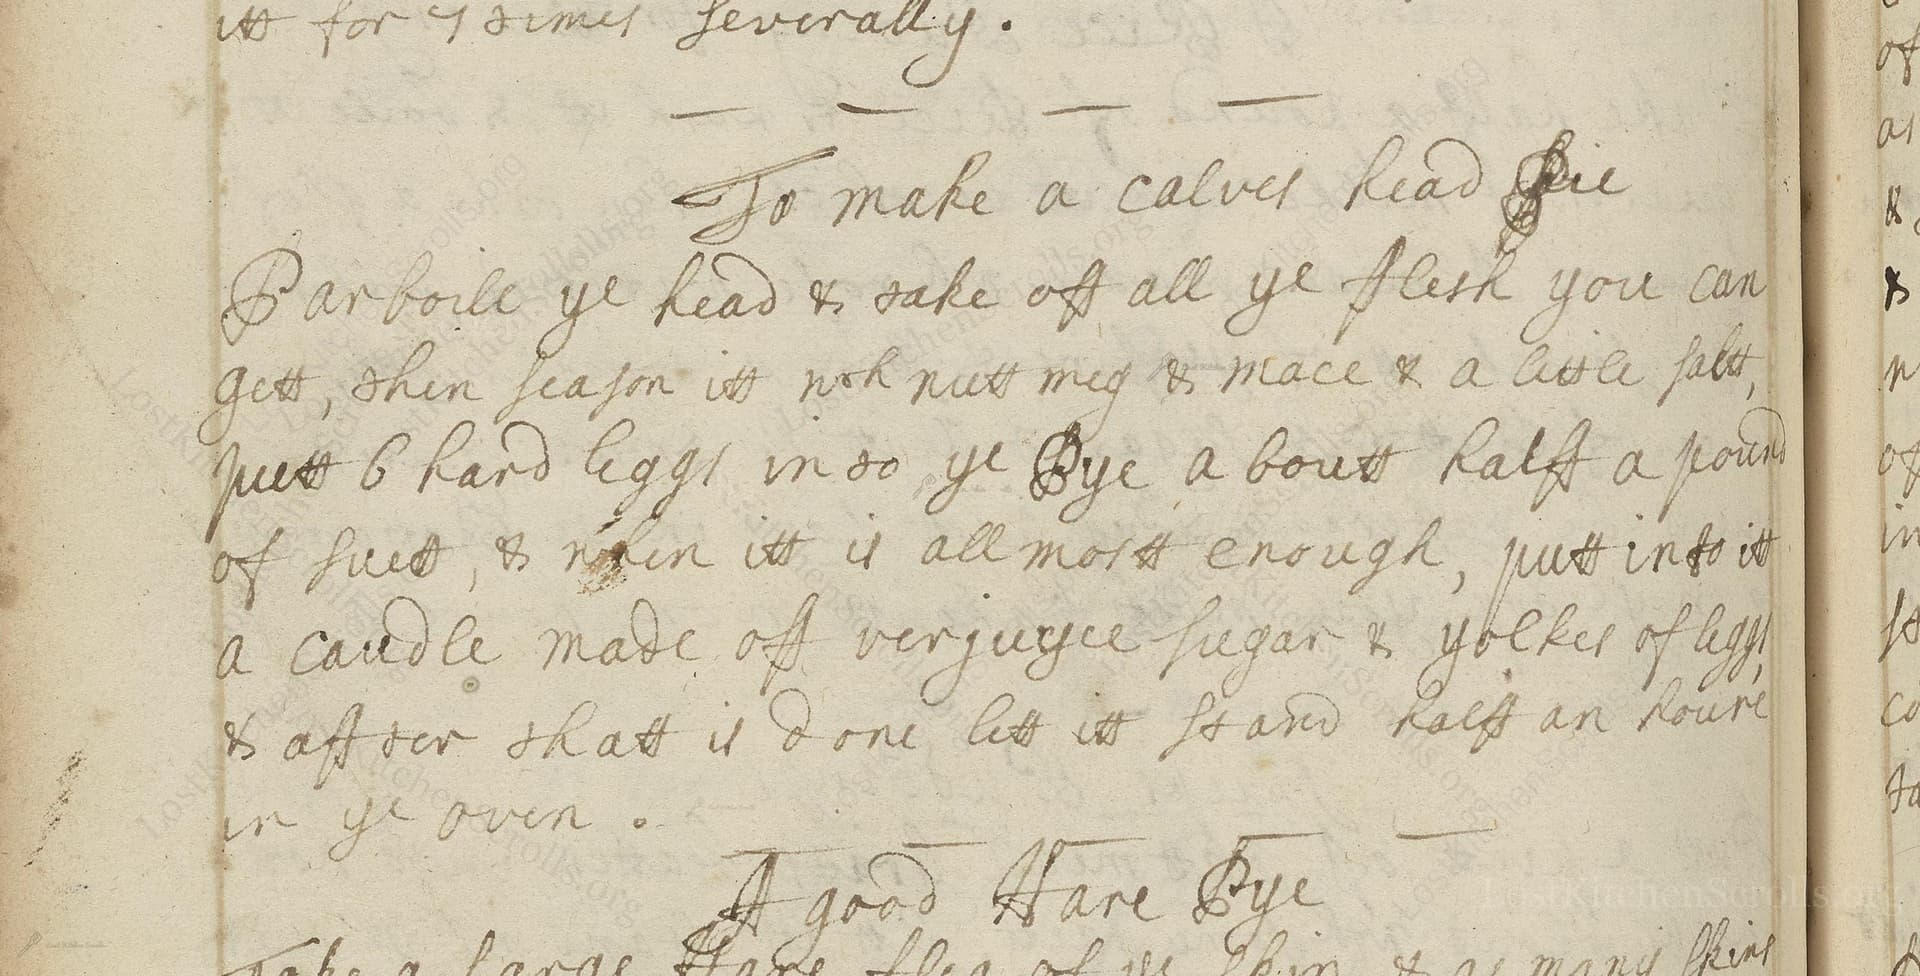 itt for 4 times severally.
To make a calves head Pie
Parboile ye head & take off all ye flesh you can
gett, then season itt wth nutt meg & mace & a little saltt,
putt 6 hard Eggs in to ye Pye a boutt halff a pound
of suett, & when itt is all mostt enough, putt into itt
a caudle made off verjuyce sugar & yolkes of Eggs,
& affter thatt is done lett itt stand halff an houre
in ye oven.
A good Hare Pye
Take a large Hare flea of ye skin & as many skins
LostKitchenScrolls.org